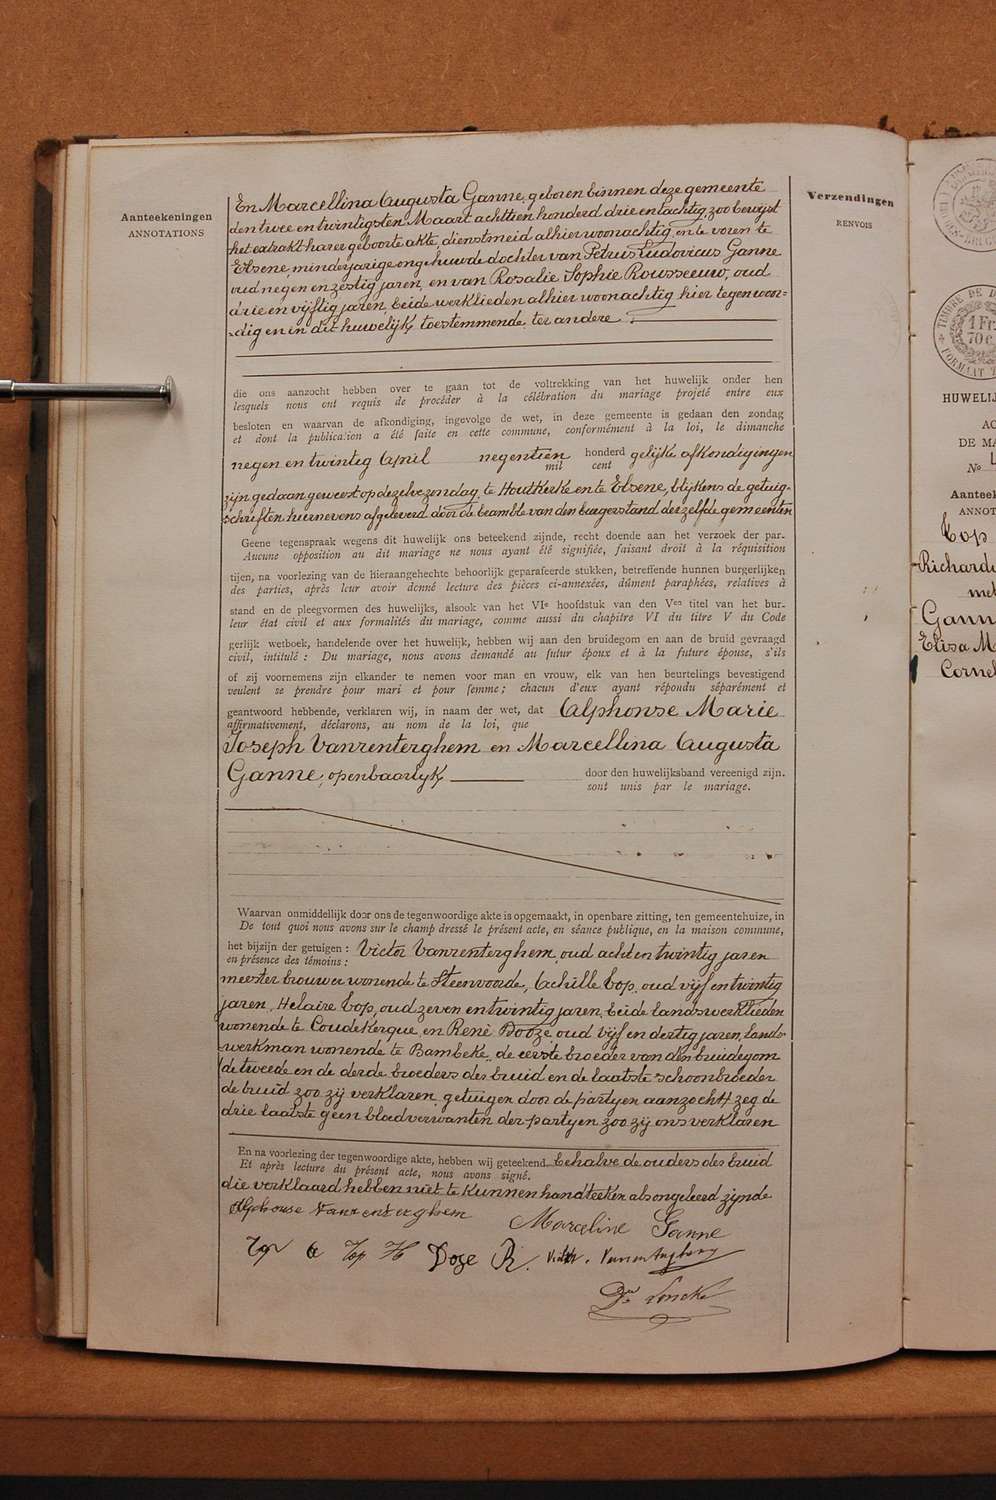 Aanteekeningen
ANNOTATIONS
Verzendingen
RENVOIS
En Marcellina Augusta Ganne, geboren binnen deze gemeente
den twee en twintigsten Maart achttien honderd drie en tachtig zoo bewijst
het extrakt harer geboorte akte, dienstmeid alhier woonachtig, en te voren te
Elsene, minderjarige ongehuwde dochter van Petrus Ludovicus Ganne
oud negen en zestig jaren, en van Rosalie Sophie Rousseeuw, oud
drie en vijftig jaren, beide werklieden alhier woonachtig hier tegenwoor-
-dig en in dit huwelijk toestemmende, ter andere
die ons aanzocht hebben over te gaan tot de voltrekking van het huwelijk onder hen
lesquels nous ont requis de procéder à la célébration du mariage projeté entre eux
besloten en waarvan de afkondiging, ingevolge de wet, in deze gemeente is gedaan den zondag
et dont la publication a été faite en cette commune, conformément à la loi, le dimanche
negen en twintig April negentien honderd gelijke afkondigingen
mil cent
zijn gedaan geweest op dezelve zondag, te Houtkerke en te Elsene, blijkens de getuig-
schriften hiernevens afgeleverd door de beambte van den burgerstand derzelfde gemeenten
Geene tegenspraak wegens dit huwelijk ons beteekend zijnde, recht doende aan het verzoek der par-
Aucune opposition au dit mariage ne nous ayant été signifiée, faisant droit à la réquisition
tijen, na voorlezing van de hieraangehechte behoorlijk geparafeerde stukken, betreffende hunnen burgerlijken
des parties, après leur avoir donné lecture des pièces ci-annexées, dûment paraphées, relatives à
stand en de pleegvormen des huwelijks, alsook van het VIe hoofdstuk van den Ven titel van het bur-
leur état civil et aux formalités du mariage, comme aussi du chapitre VI du titre V du Code
gerlijk wetboek, handelende over het huwelijk, hebben wij aan den bruidegom en aan de bruid gevraagd
civil, intitulé : Du mariage, nous avons demandé au futur époux et à la future épouse, s'ils
of zij voornemens zijn elkander te nemen voor man en vrouw, elk van hen beurtelings bevestigend
veulent se prendre pour mari et pour femme; chacun d'eux ayant répondu séparément et
geantwoord hebbende, verklaren wij, in naam der wet, dat Alphonse Marie
affirmativement, déclarons, au nom de la loi, que
Joseph Vanrenterghem en Marcellina Augusta
Ganne, openbaarlijk door den huwelijksband vereenigd zijn.
sont unis par le mariage.
Waarvan onmiddellijk door ons de tegenwoordige akte is opgemaakt, in openbare zitting, ten gemeentehuize, in
De tout quoi nous avons sur le champ dressé le présent acte, en séance publique, en la maison commune,
het bijzijn der getuigen : Victor Vanrenterghem, oud acht en twintig jaren
en présence des témoins :
meester brouwer wonende te Steenvoorde, Achille Cop, oud vijf en twintig
jaren, Helaire Cop, oud zeven en twintig jaren, beide landswerklieden
wonende te Coudekerque, en René Dooze oud vijf en dertig jaren, lands-
werkman wonende te Bambeke, de eerste broeder van den bruidegom
de tweede en de derde broeders des bruid en de laatste schoonbroeder
de bruid zoo zij verklaren, getuigen door de partijen aanzocht, zeg de
drie laatste geen bloedverwanten der partyen zoo zij ons verklaren
En na voorlezing der tegenwoordige akte, hebben wij geteekend behalve de ouders des bruid
Et après lecture du présent acte, nous avons signé.
die verklaard hebben niet te kunnen handteeken als ongeleerd zijnde
Alphonse Vanrenterghem
Marceline Ganne
Top a Top H Doze R. Victor Vanrenterghem
HUWELIJ
AC
DE MA
No
Aanteek
ANNOT
Cop
Richarde
met
Gann
Elisa M
Cornel
TIMBRE DE D
1 Fr
70 c
FORMAAT